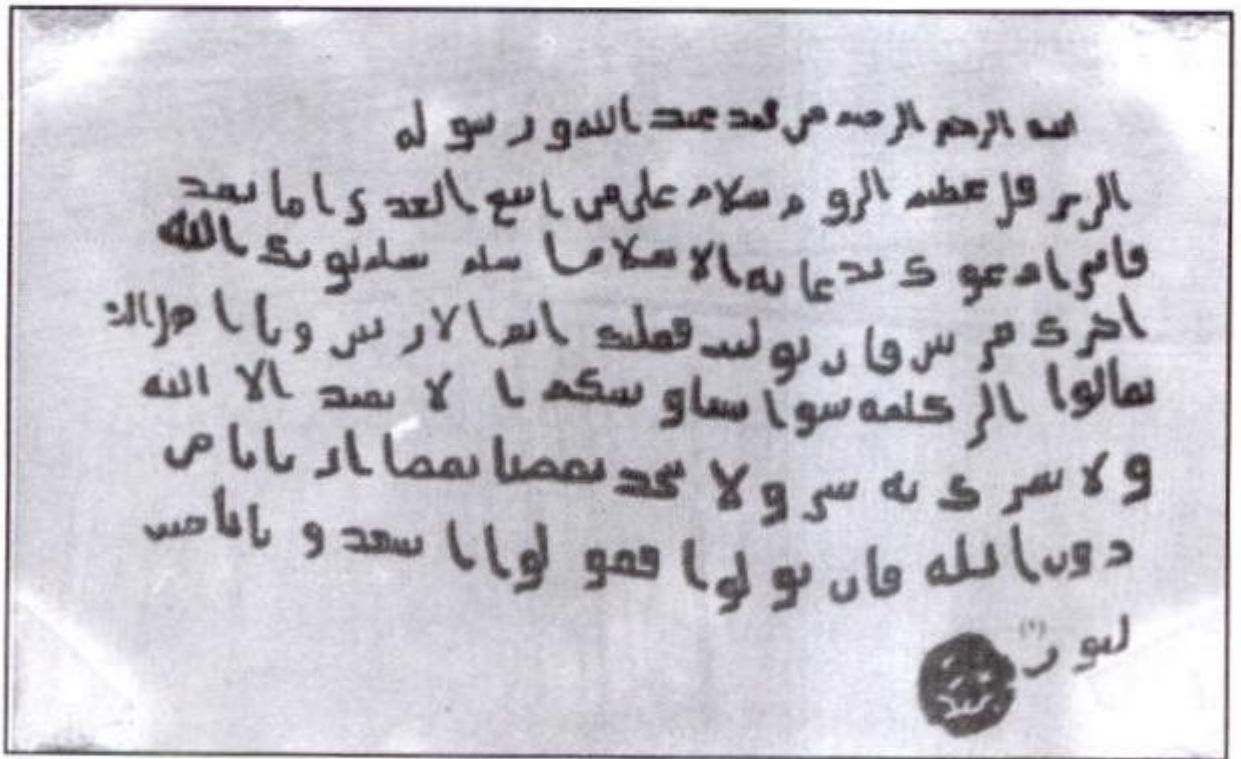 الرحمن من محمد عبد الله و رسوله
الى هرقل عظيم الروم سلام على من اتبع الهدى اما بعد
فانى ادعوك بدعاية الاسلام اسلم تسلم يوتك الله
اجرك مرتين فان توليت فعليك اثم الاريسين ويا اهل
تعالوا الى كلمة سوا بيننا وبينكم الا نعبد الا الله
ولا نشرك به شي ولا يتخذ بعضنا بعضا اربابا من
دون الله فان تولوا فقولوا اشهدوا بانا مس
لمون (١)